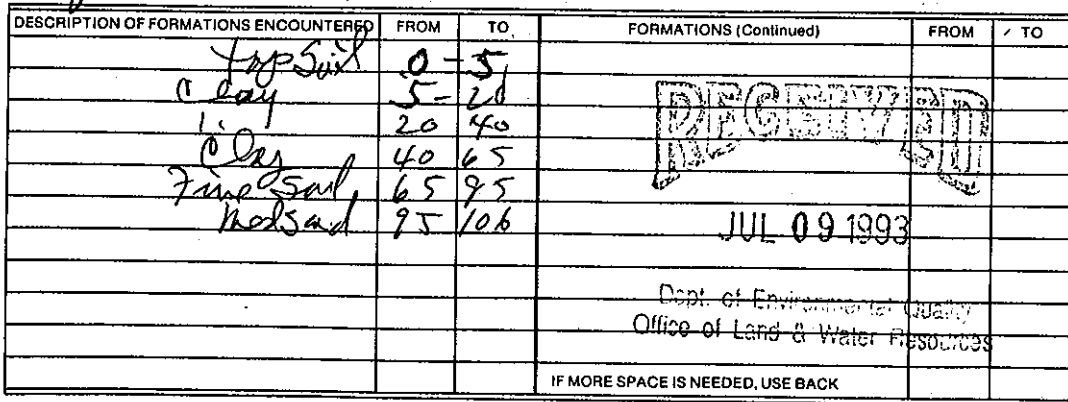 DESCRIPTION OF FORMATIONS ENCOUNTERED FROM TO FORMATIONS (Continued) FROM TO
top Soil 0 - 5
Clay 5 - 20
" 20 40
Clay 40 65
Fine Sand 65 95
Med Sand 95 106
RECEIVED
JUL 09 1993
Dept. of Environmental Quality
Office of Land & Water Resources
IF MORE SPACE IS NEEDED, USE BACK